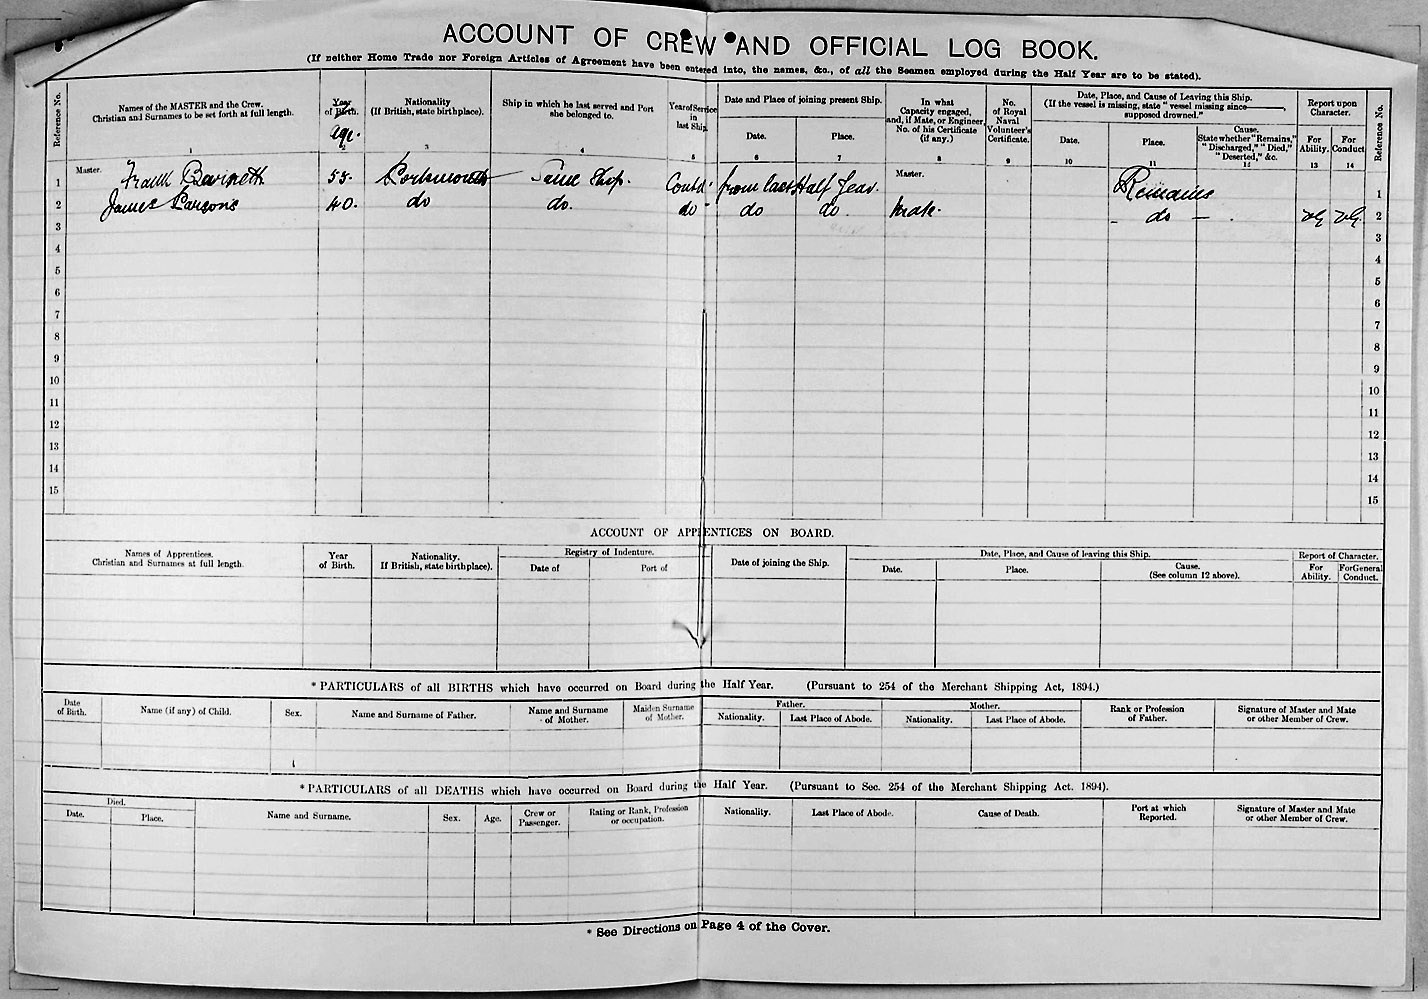 ACCOUNT OF CREW AND OFFICIAL LOG BOOK.
(If neither Home Trade nor Foreign Articles of Agreement have been entered into, the names, &c., of all the Seamen employed during the Half Year are to be stated).
Reference No.
Names of the MASTER and the Crew.
Christian and Surnames to be set forth at full length.
1
Year
of Birth.
age.
2
Nationality
(If British, state birthplace).
3
Ship in which he last served and Port
she belonged to.
4
Year of Service
in
last Ship.
5
Date and Place of joining present Ship.
Date.
6
Place.
7
In what
Capacity engaged,
and, if Mate, or Engineer,
No. of his Certificate
(if any.)
8
No.
of Royal
Naval
Volunteer's
Certificate.
9
Date, Place, and Cause of Leaving this Ship.
(If the vessel is missing, state "vessel missing since———,
supposed drowned."
Date.
10
Place.
11
Cause.
State whether "Remains,"
"Discharged," "Died,"
"Deserted," &c.
12
Report upon
Character.
For
Ability.
13
For
Conduct
14
Reference No.
1 Master. Frank 55. Portsmouth Same Ship. Contd. from last Half Year. Master. Remains 1
2 James Parsons 40. do do. do do do. Mate. – do – . VG VG. 2
3 3
4 4
5 5
6 6
7 7
8 8
9 9
10 10
11 11
12 12
13 13
14 14
15 15
ACCOUNT OF APPRENTICES ON BOARD.
Names of Apprentices.
Christian and Surnames at full length.
Year
of Birth.
Nationality.
If British, state birthplace).
Registry of Indenture.
Date of
Port of
Date of joining the Ship.
Date, Place, and Cause of leaving this Ship.
Date.
Place.
Cause.
(See column 12 above).
Report of Character.
For
Ability.
For General
Conduct.
* PARTICULARS of all BIRTHS which have occurred on Board during the Half Year. (Pursuant to 254 of the Merchant Shipping Act, 1894.)
Date
of Birth.
Name (if any) of Child.
Sex.
Name and Surname of Father.
Name and Surname
of Mother.
Maiden Surname
of Mother.
Father.
Nationality.
Last Place of Abode.
Mother.
Nationality.
Last Place of Abode.
Rank or Profession
of Father.
Signature of Master and Mate
or other Member of Crew.
* PARTICULARS of all DEATHS which have occurred on Board during the Half Year. (Pursuant to Sec. 254 of the Merchant Shipping Act. 1894).
Died.
Date.
Place.
Name and Surname.
Sex.
Age.
Crew or
Passenger.
Rating or Rank, Profession
or occupation.
Nationality.
Last Place of Abode.
Cause of Death.
Port at which
Reported.
Signature of Master and Mate
or other Member of Crew.
* See Directions on Page 4 of the Cover.